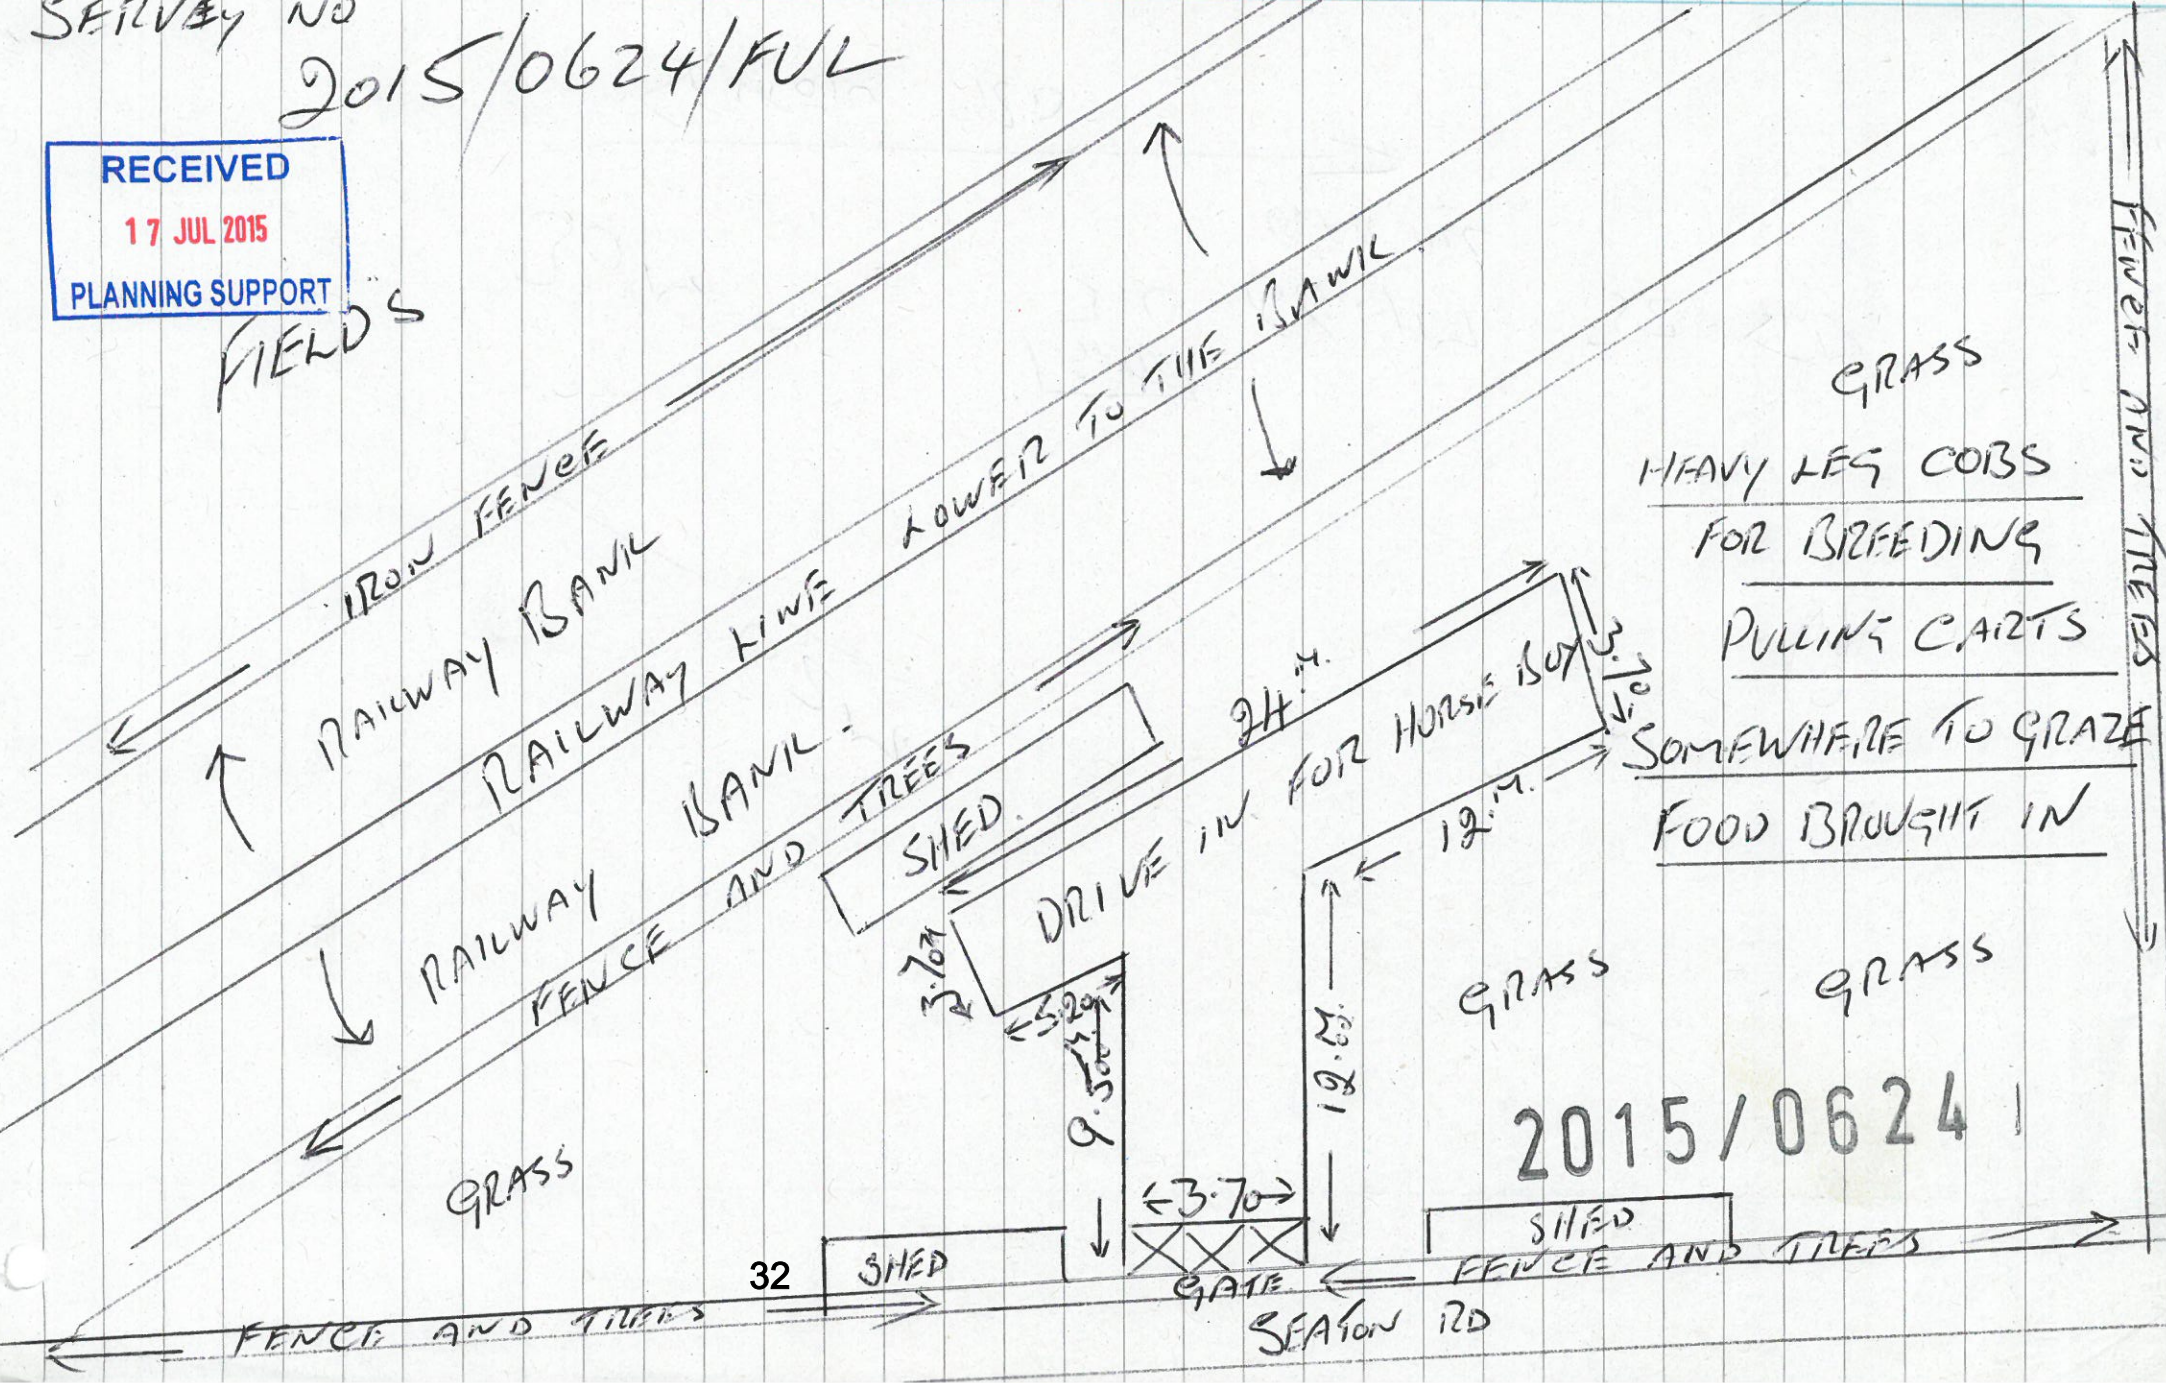 SERVEY NO
2015/0624/FUL
RECEIVED
17 JUL 2015
PLANNING SUPPORT
FIELDS
IRON FENCE
RAILWAY BANK
RAILWAY LINE LOWER TO THE BANK.
RAILWAY BANK.
FENCE AND TREES
SHED.
24.M.
DRIVE IN FOR HORSE BOX
3.70
3.70
12.M.
5.20
9.50
12.M.
FENCE AND TREES
GRASS
HEAVY LEG COBS
FOR BREEDING
PULLING CARTS
SOMEWHERE TO GRAZE
FOOD BROUGHT IN
GRASS
GRASS
2015/0624
GRASS
3.70
SHED
SHED
32
GATE
FENCE AND TREES
FENCE AND TREES
SEATON RD